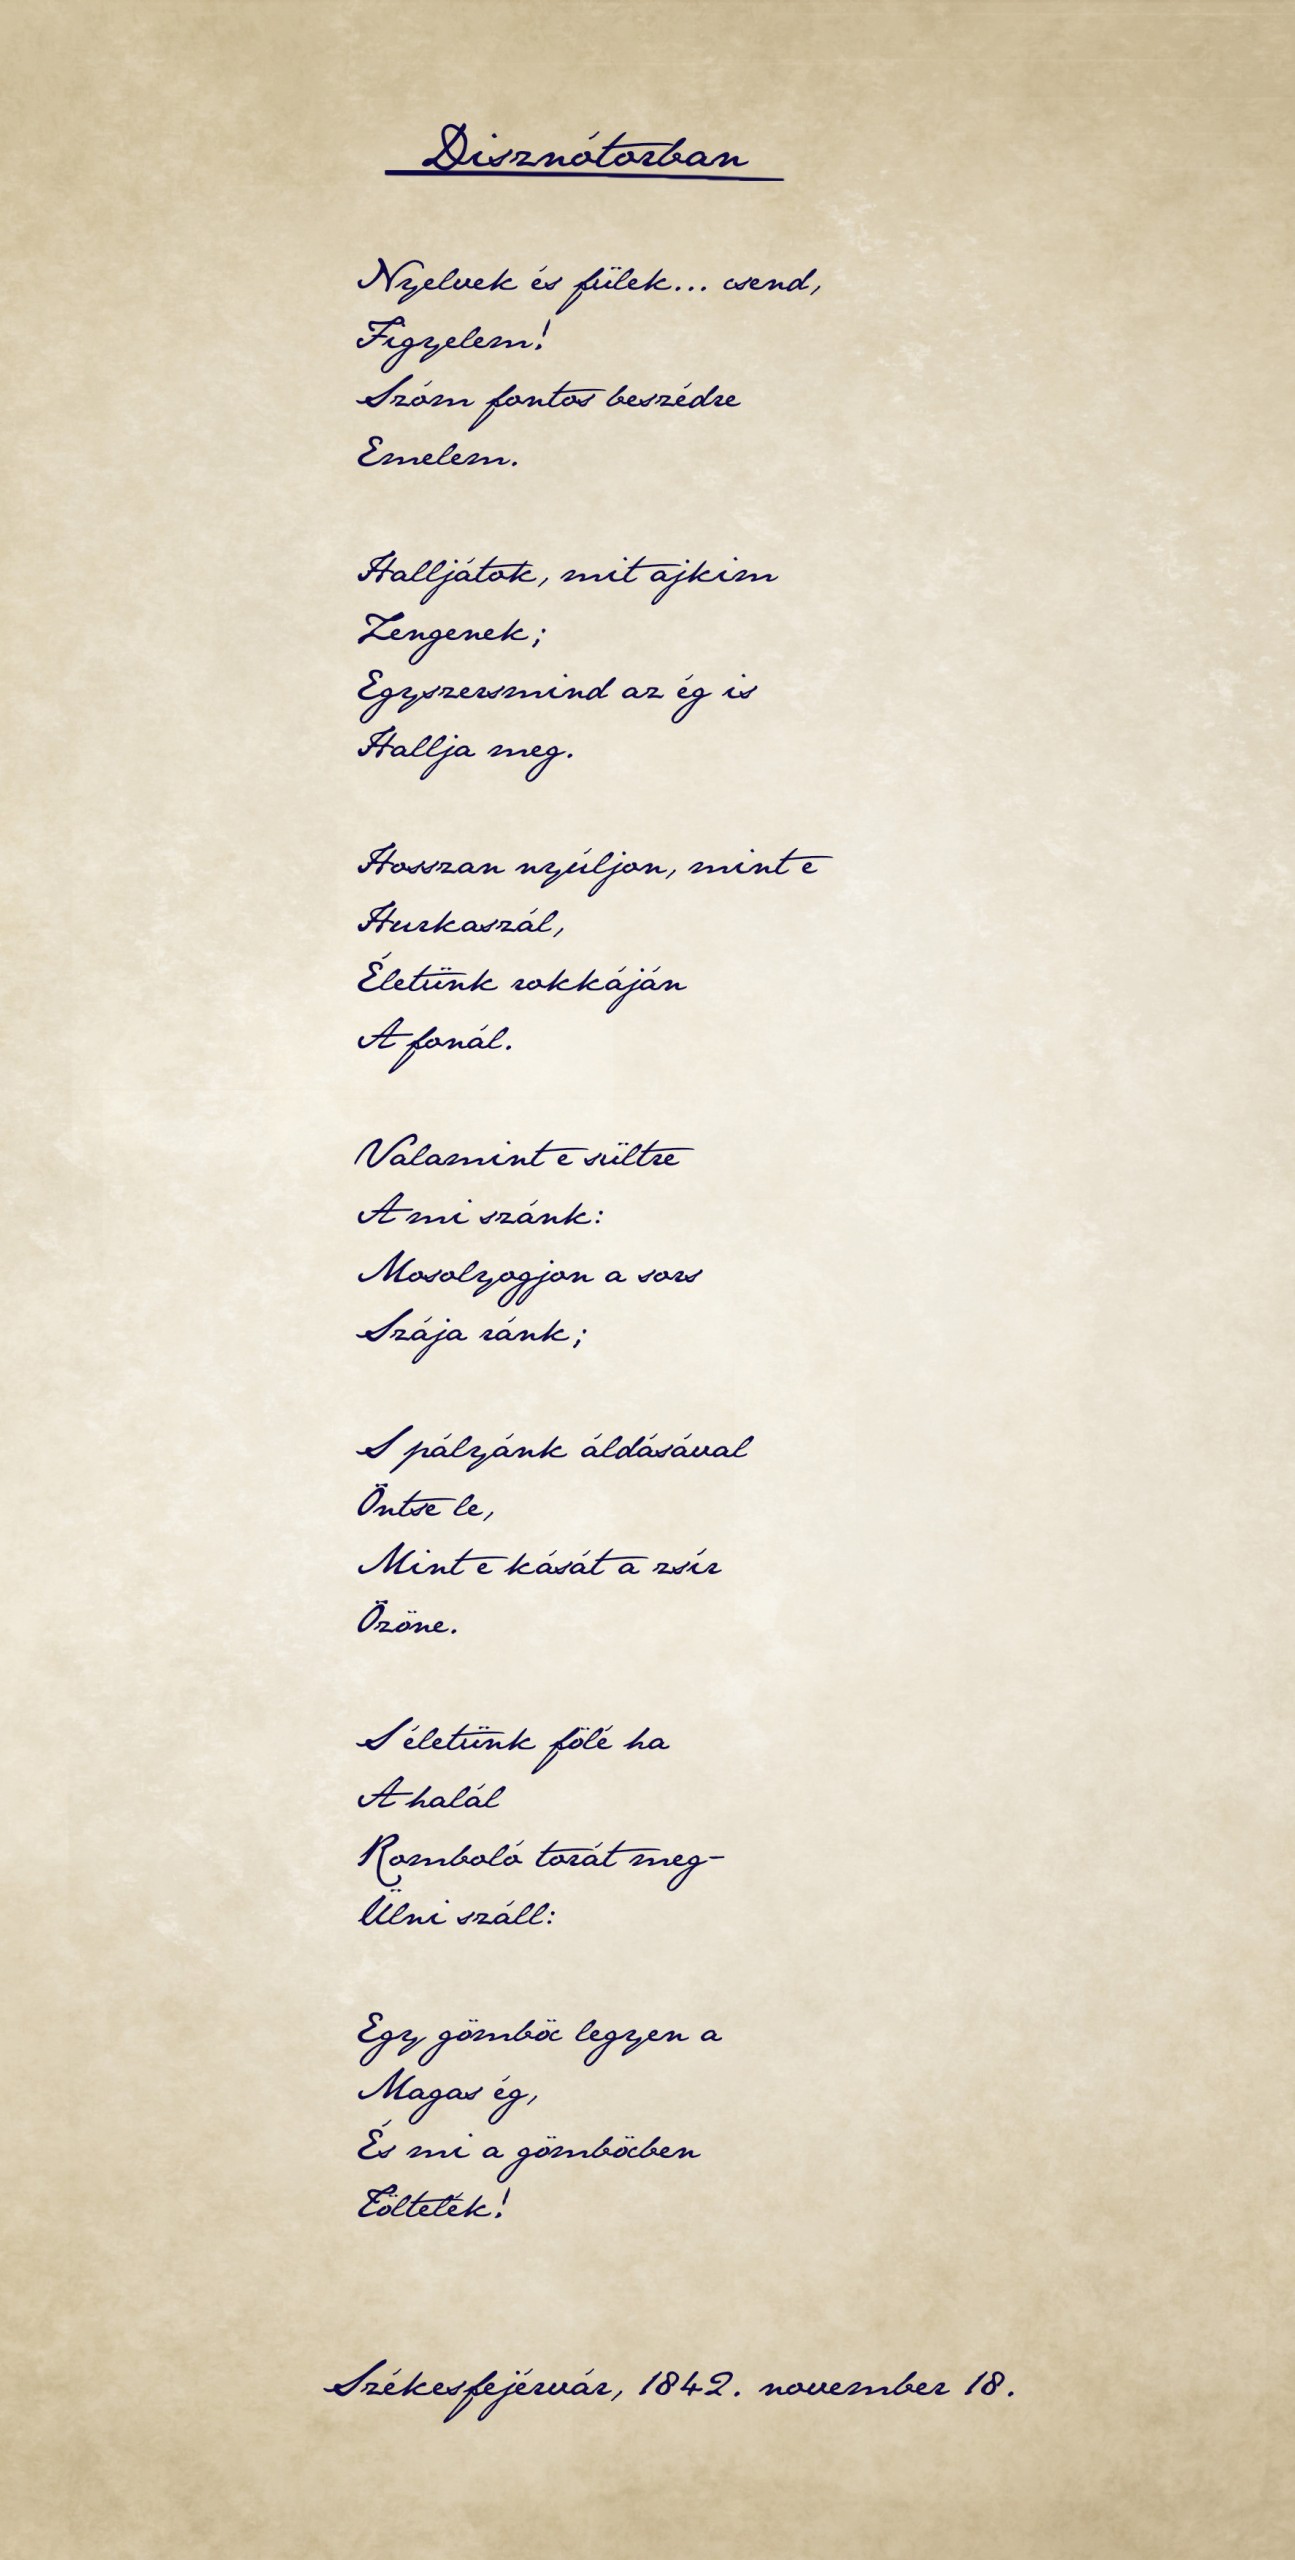 Disznótorban
Nyelvek és fülek... csend,
Figyelem!
Szóm fontos beszédre
Emelem.
Halljátok, mit ajkim
Zengenek;
Egyszersmind az ég is
Hallja meg.
Hosszan nyúljon, mint e
Hurkaszál,
Életünk rokkáján
A fonál.
Valamint e sültre
A mi szánk:
Mosolyogjon a sors
Szája ránk;
S pályánk áldásával
Öntse le,
Mint e kását a zsír
Özöne.
S életünk fölé ha
A halál
Romboló torát meg-
Ülni száll:
Egy gömböc legyen a
Magas ég,
És mi a gömböcben
Töltelék!
Székesfejérvár, 1842. november 18.